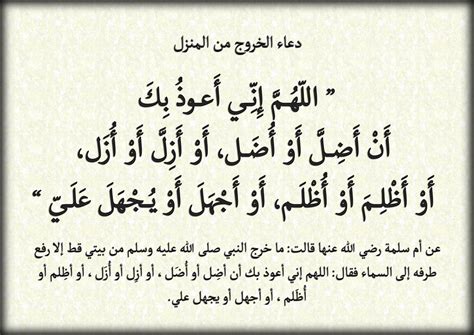 دعاء الخروج من المنزل
” اللّهُمَّ إِنِّـي أَعـوذُ بِكَ
أَنْ أَضِـلَّ أَوْ أُضَـل، أَوْ أَزِلَّ أَوْ أُزَل،
أَوْ أَظْلِـمَ أَوْ أُظْلَـم، أَوْ أَجْهَلَ أَوْ يُـجْهَلَ عَلَـيّ “
عن أم سلمة رضي الله عنها قالت: ما خرج النبي صلى الله عليه وسلم من بيتي قط إلا رفع
طرفه إلى السماء فقال: اللهم إني أعوذ بك أن أضِل أو أُضَل ، أو أزِل أو أُزَل ، أو أظلِم أو
أُظلَم ، أو أجهل أو يجهل علي.